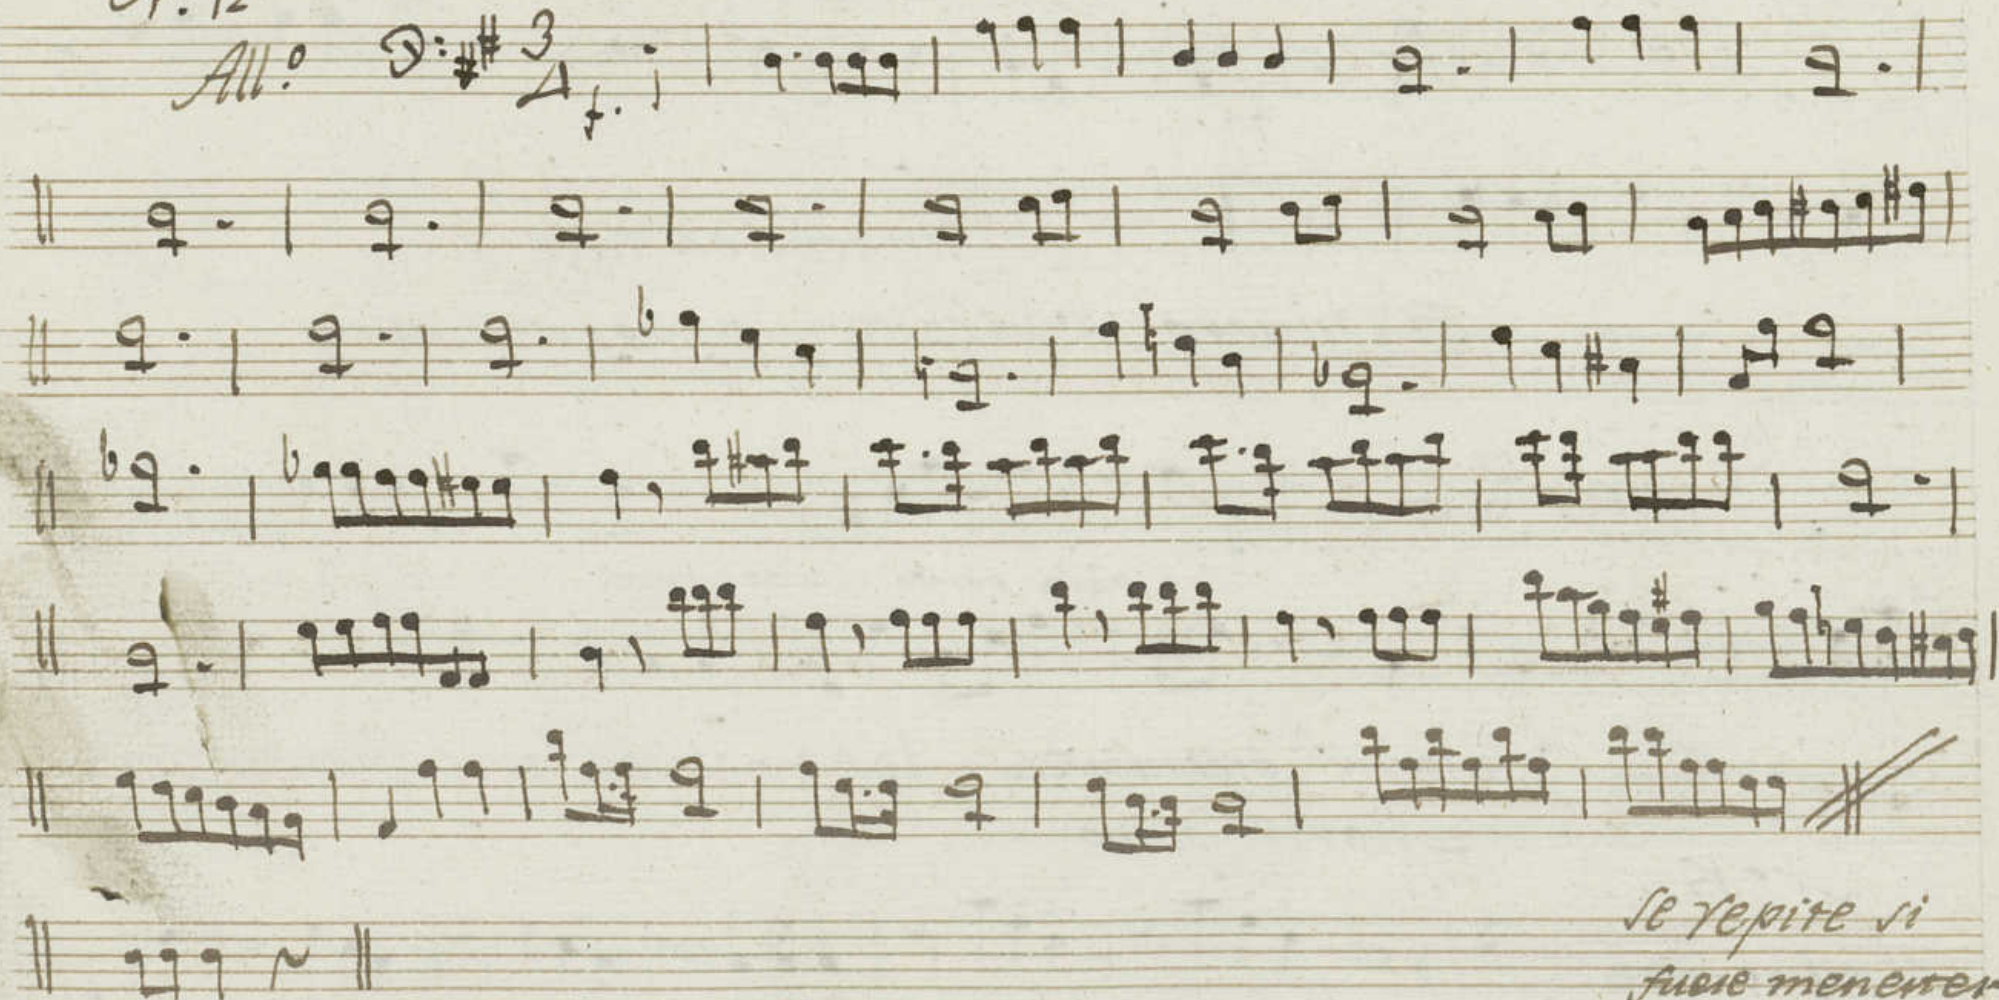 All.º 3 4 f.
se repite si
fuese menester